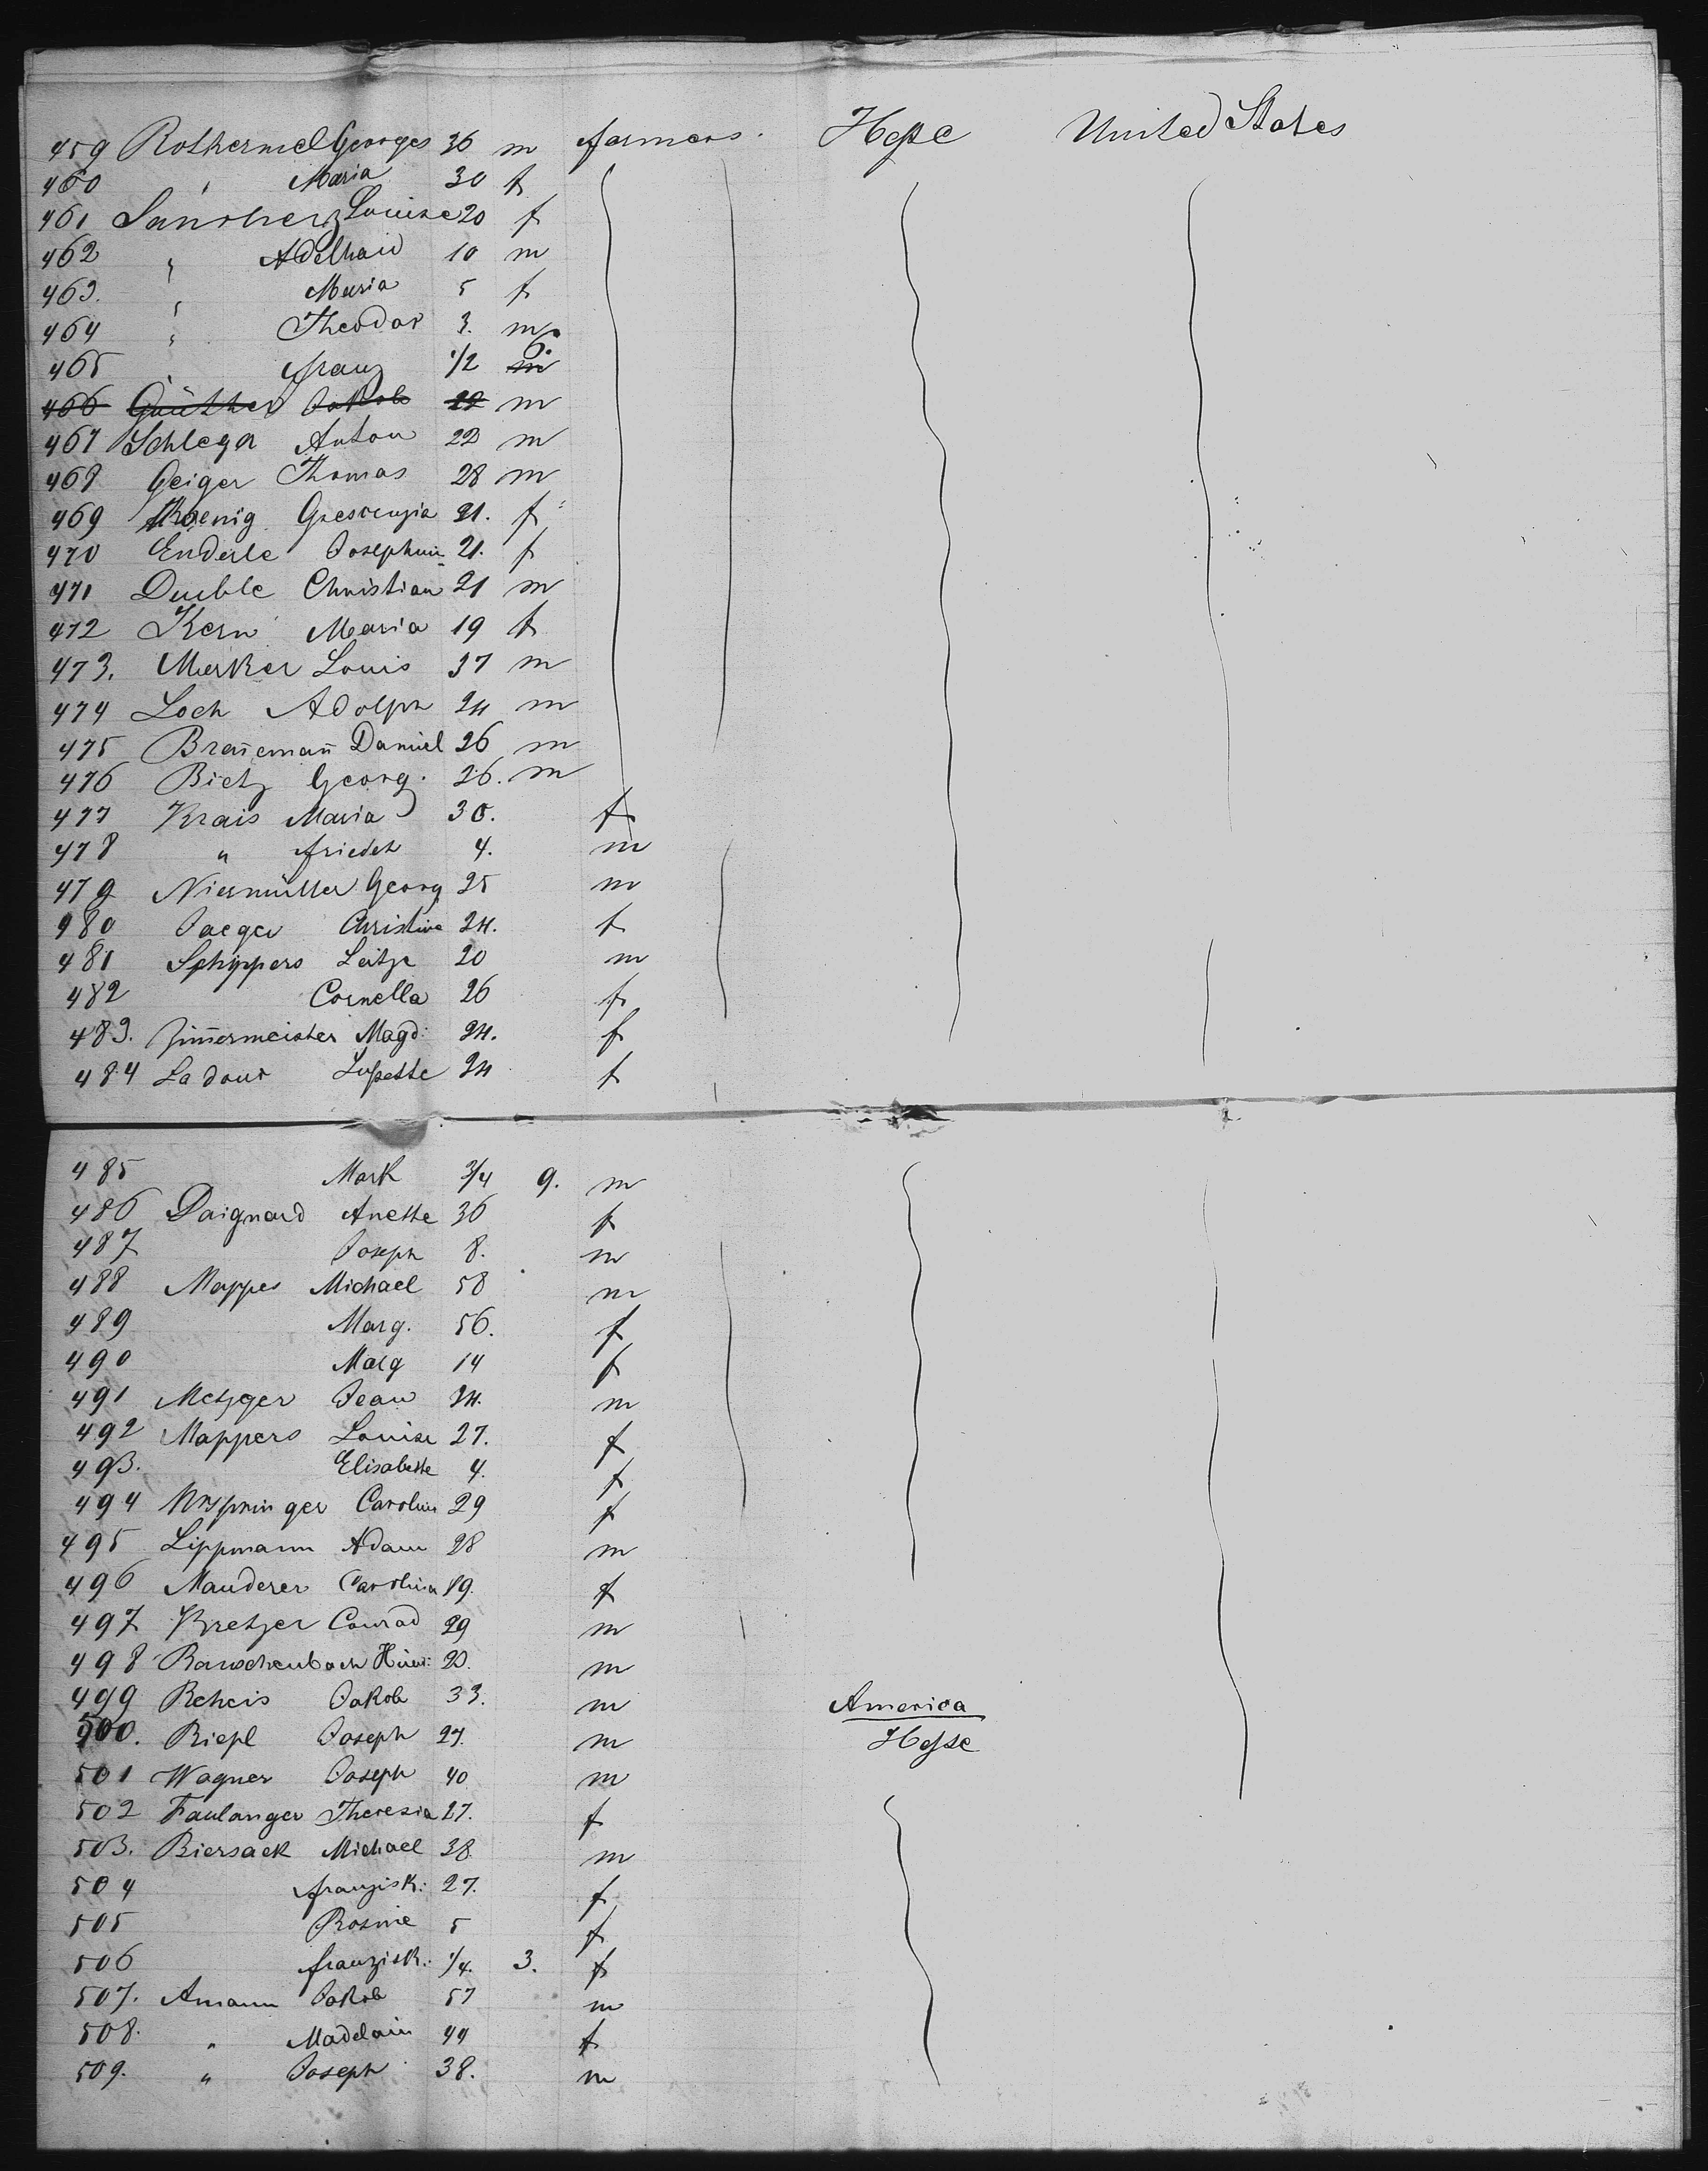 459 Rothermel Georges 36 m farmers. Heße United States
460 " Maria 30 f
461 Sanoherz Louise 20 f
462 " Adelhaid 10 m
463. " Maria 5 f
464 " Theodor 3. m
465 " franz 1/2 6. m
466 Günther Jakob 22 m
467 Schlegel Anton 22 m
468 Geiger Thomas 28 m
469 Koenig Grescenzia 21. f
470 Enderle Josephine 21. f
471 Deuble Christian 21 m
472 Kern Maria 19 f
473. Merker Louis 37 m
474 Loch Adolph 24 m
475 Breñemañ Daniel 26 m
476 Bietz Georg. 26. m
477 Krais Maria 30. f
478 " friedch 4. m
479 Niermüller Georg 25 m
480 Jaeger Christine 24. f
481 Schippers Leitze 20 m
482 Cornella 26 f
483. Zim̃ermeister Magd: 24. f
484 Ladour Lußette 24 f
485 Mark 3/4 9. m
486 Daignard Anette 36 f
487 Joseph 8. m
488 Mappes Michael 58 m
489 Marg. 56. f
490 Marg 14 f
491 Metzger Jean 24. m
492 Mappers Louise 27. f
493. Elisabette 4. f
494 Urspringer Carolin 29 f
495 Lippmann Adam 28 m
496 Mauderer Carolina 19. f
497 Kretzer Conrad 29 m
498 Rauschenbach Heinr: 20. m
499 Reheis Jakob 33. m America
500. Riepl Joseph 27. m Heße
501 Wagner Joseph 40 m
502 Faulanger Theresia 27. f
503. Biersack Michael 38 m
504 franzisk: 27. f
505 Rosine 5 f
506 franzisk: 1/4. 3. f
507. Amann Jakob 57 m
508. " Madelain 44 f
509. " Joseph 38. m